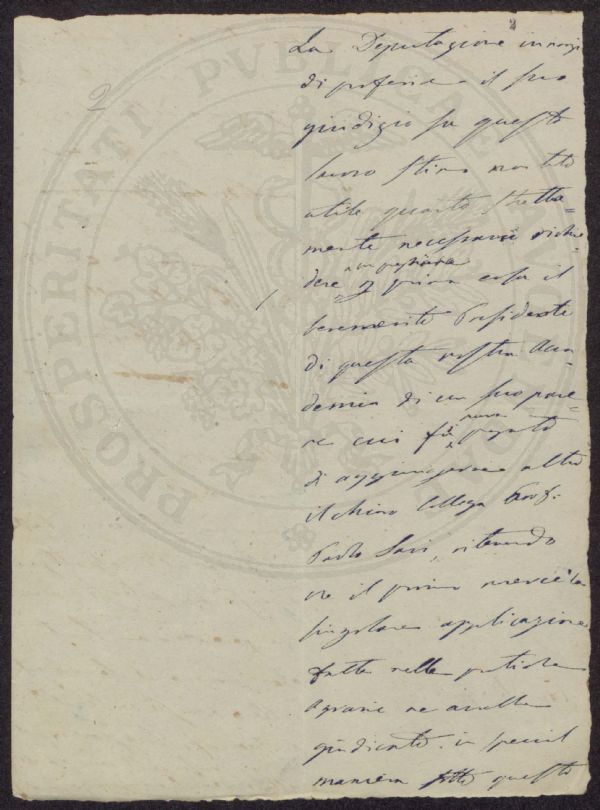 2
2
La Deputazione innanzi
di proferire il suo
giudizio su questo
lavoro stima non tanto
utile quanto stretta=
mente necessario richie=
dere a preferenza
prima cosa il
benemerito Presidente
di questa nostra Acca=
demia di un suo pare=
re cui fu pregato
di aggiungerne altro
il chino Collega Prof.
Paolo Savi, ritenendo
che il primo mercè la
singolare applicazione
fatta nelle pratiche
Agrarie ne avrebbe
giudicato in special
maniera sotto questo
PROSPERITATI PVBLICAE